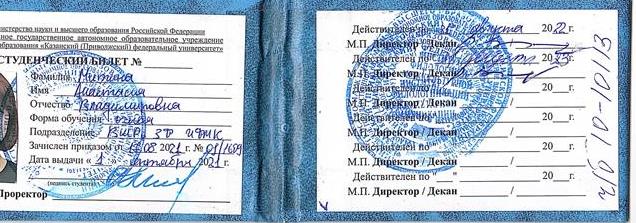 министерство науки и высшего образования Российской Федерации
ное государственное автономное образовательное учреждение
образования «Казанский (Приволжский) федеральный университет»
СТУДЕНЧЕСКИЙ БИЛЕТ №
Фамилия Митина
Имя Анастасия
Отчество Владимировна
Форма обучения очная
Подразделение
Зачислен приказом от 2021 г. № 01/1689
Дата выдачи « 1 сентября 2021 г.
(подпись студента)
Проректор
Действителен по августа 2022 г.
М.П. Директор / Декан
Действителен по 2023 г.
М.П. Директор / Декан
Действителен по 20 г.
М.П. Директор / Декан
Действителен по 20 г.
М.П. Директор / Декан
Действителен по 20 г.
М.П. Директор / Декан
Действителен по " 20 г.
М.П. Директор / Декан /
10-101/3